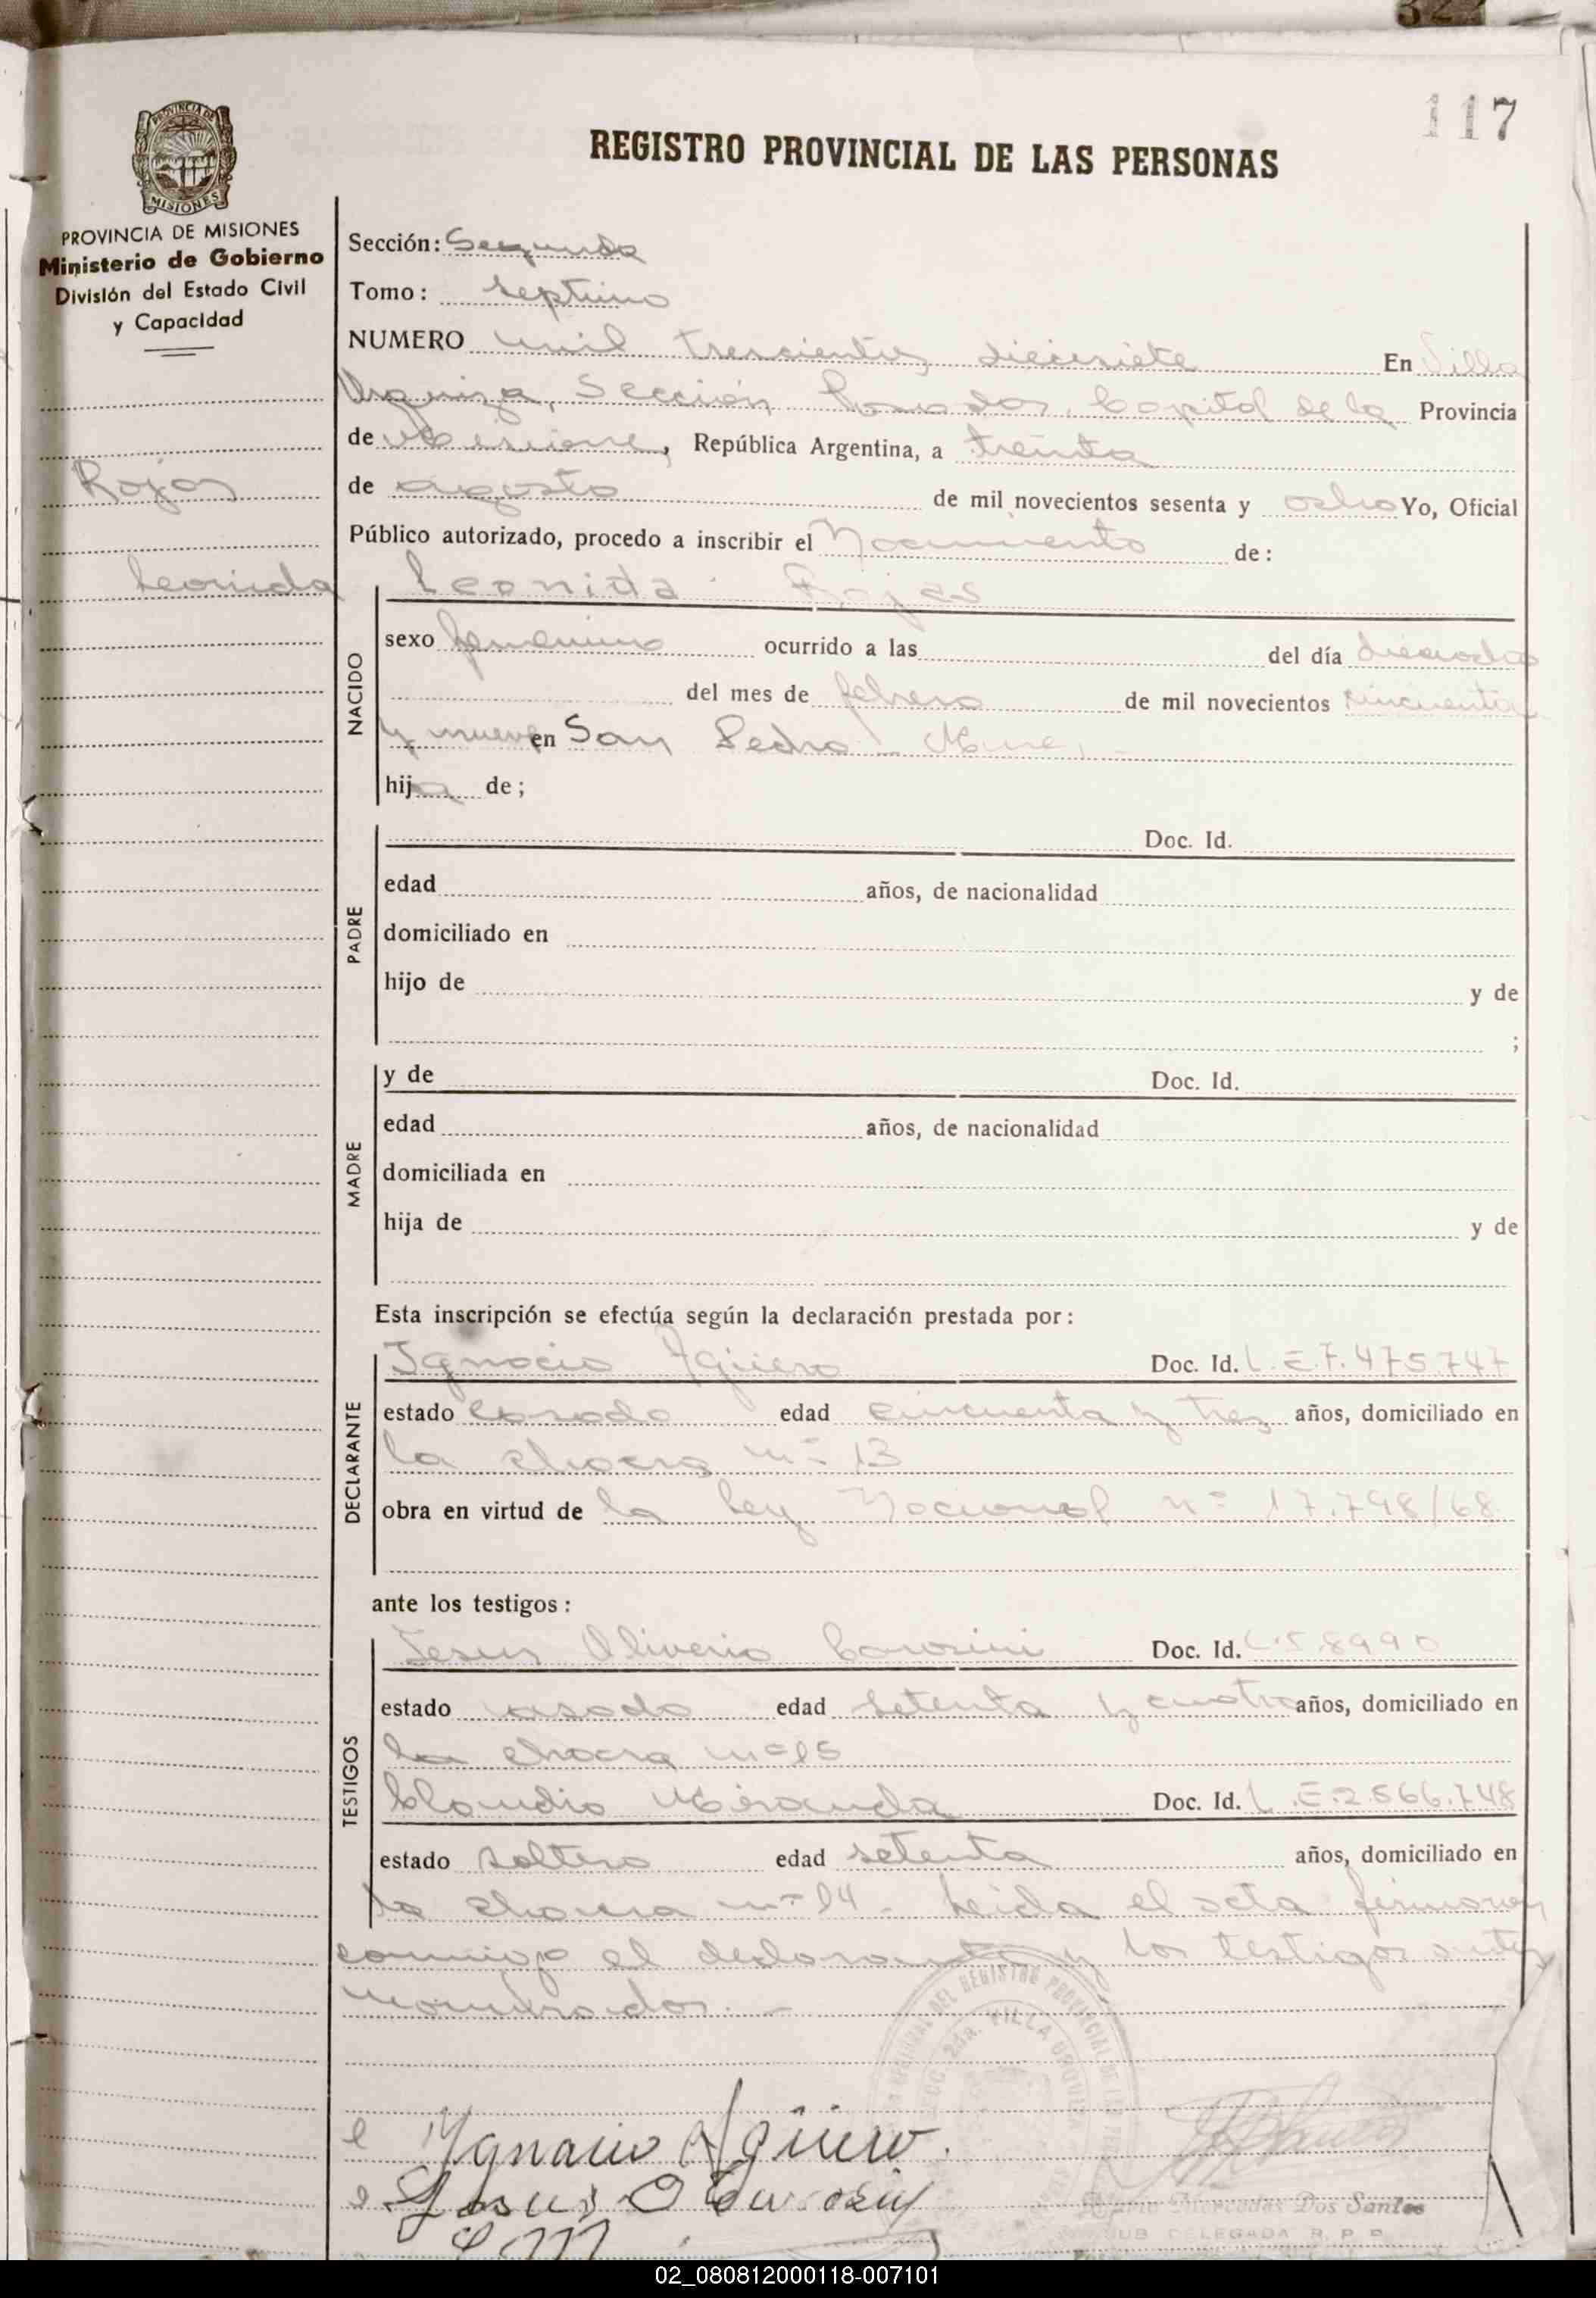 117
PROVINCIA DE
MISIONES
REGISTRO PROVINCIAL DE LAS PERSONAS
PROVINCIA DE MISIONES
Ministerio de Gobierno
División del Estado Civil
y Capacidad
Rojas
Leonida
Sección: Segunda
Tomo: septimo
NUMERO mil trescientos diecisiete En Villa
Urquiza, Sección Posadas, Capital de la Provincia
de Misiones, República Argentina, a treinta
de agosto de mil novecientos sesenta y ocho Yo, Oficial
Público autorizado, procedo a inscribir el Nacimiento de:
NACIDO
Leonida Rojas
sexo femenino ocurrido a las del día dieciocho
del mes de febrero de mil novecientos cincuenta
y nueve en San Pedro Mnes,
hija de;
PADRE
Doc. Id.
edad años, de nacionalidad
domiciliado en
hijo de y de
;
MADRE
y de Doc. Id.
edad años, de nacionalidad
domiciliada en
hija de y de
Esta inscripción se efectúa según la declaración prestada por:
DECLARANTE
Ignacio Agüero Doc. Id. L.E.7.475.747
estado casado edad cincuenta y tres años, domiciliado en
la chacra nº 13
obra en virtud de la Ley Nacional nº 17.798/68
ante los testigos:
TESTIGOS
Jesus Oliverio Doc. Id.
estado casado edad setenta y cuatro años, domiciliado en
la chacra nº 15
Claudio Miranda Doc. Id. L.E.2.566.748
estado soltero edad setenta años, domiciliado en
la chacra nº 14 - Leida el acta firmaron
conmigo el declarante y los testigos antes
nombrados. -
DEL REGISTRO PROVINCIAL DE LAS
SECC. 2da. VILLA URQUIZA
Ygnacio Agüero.
Jesus O
Mercedes Dos Santos
SUB DELEGADA R. P. P.
02_080812000118-007101